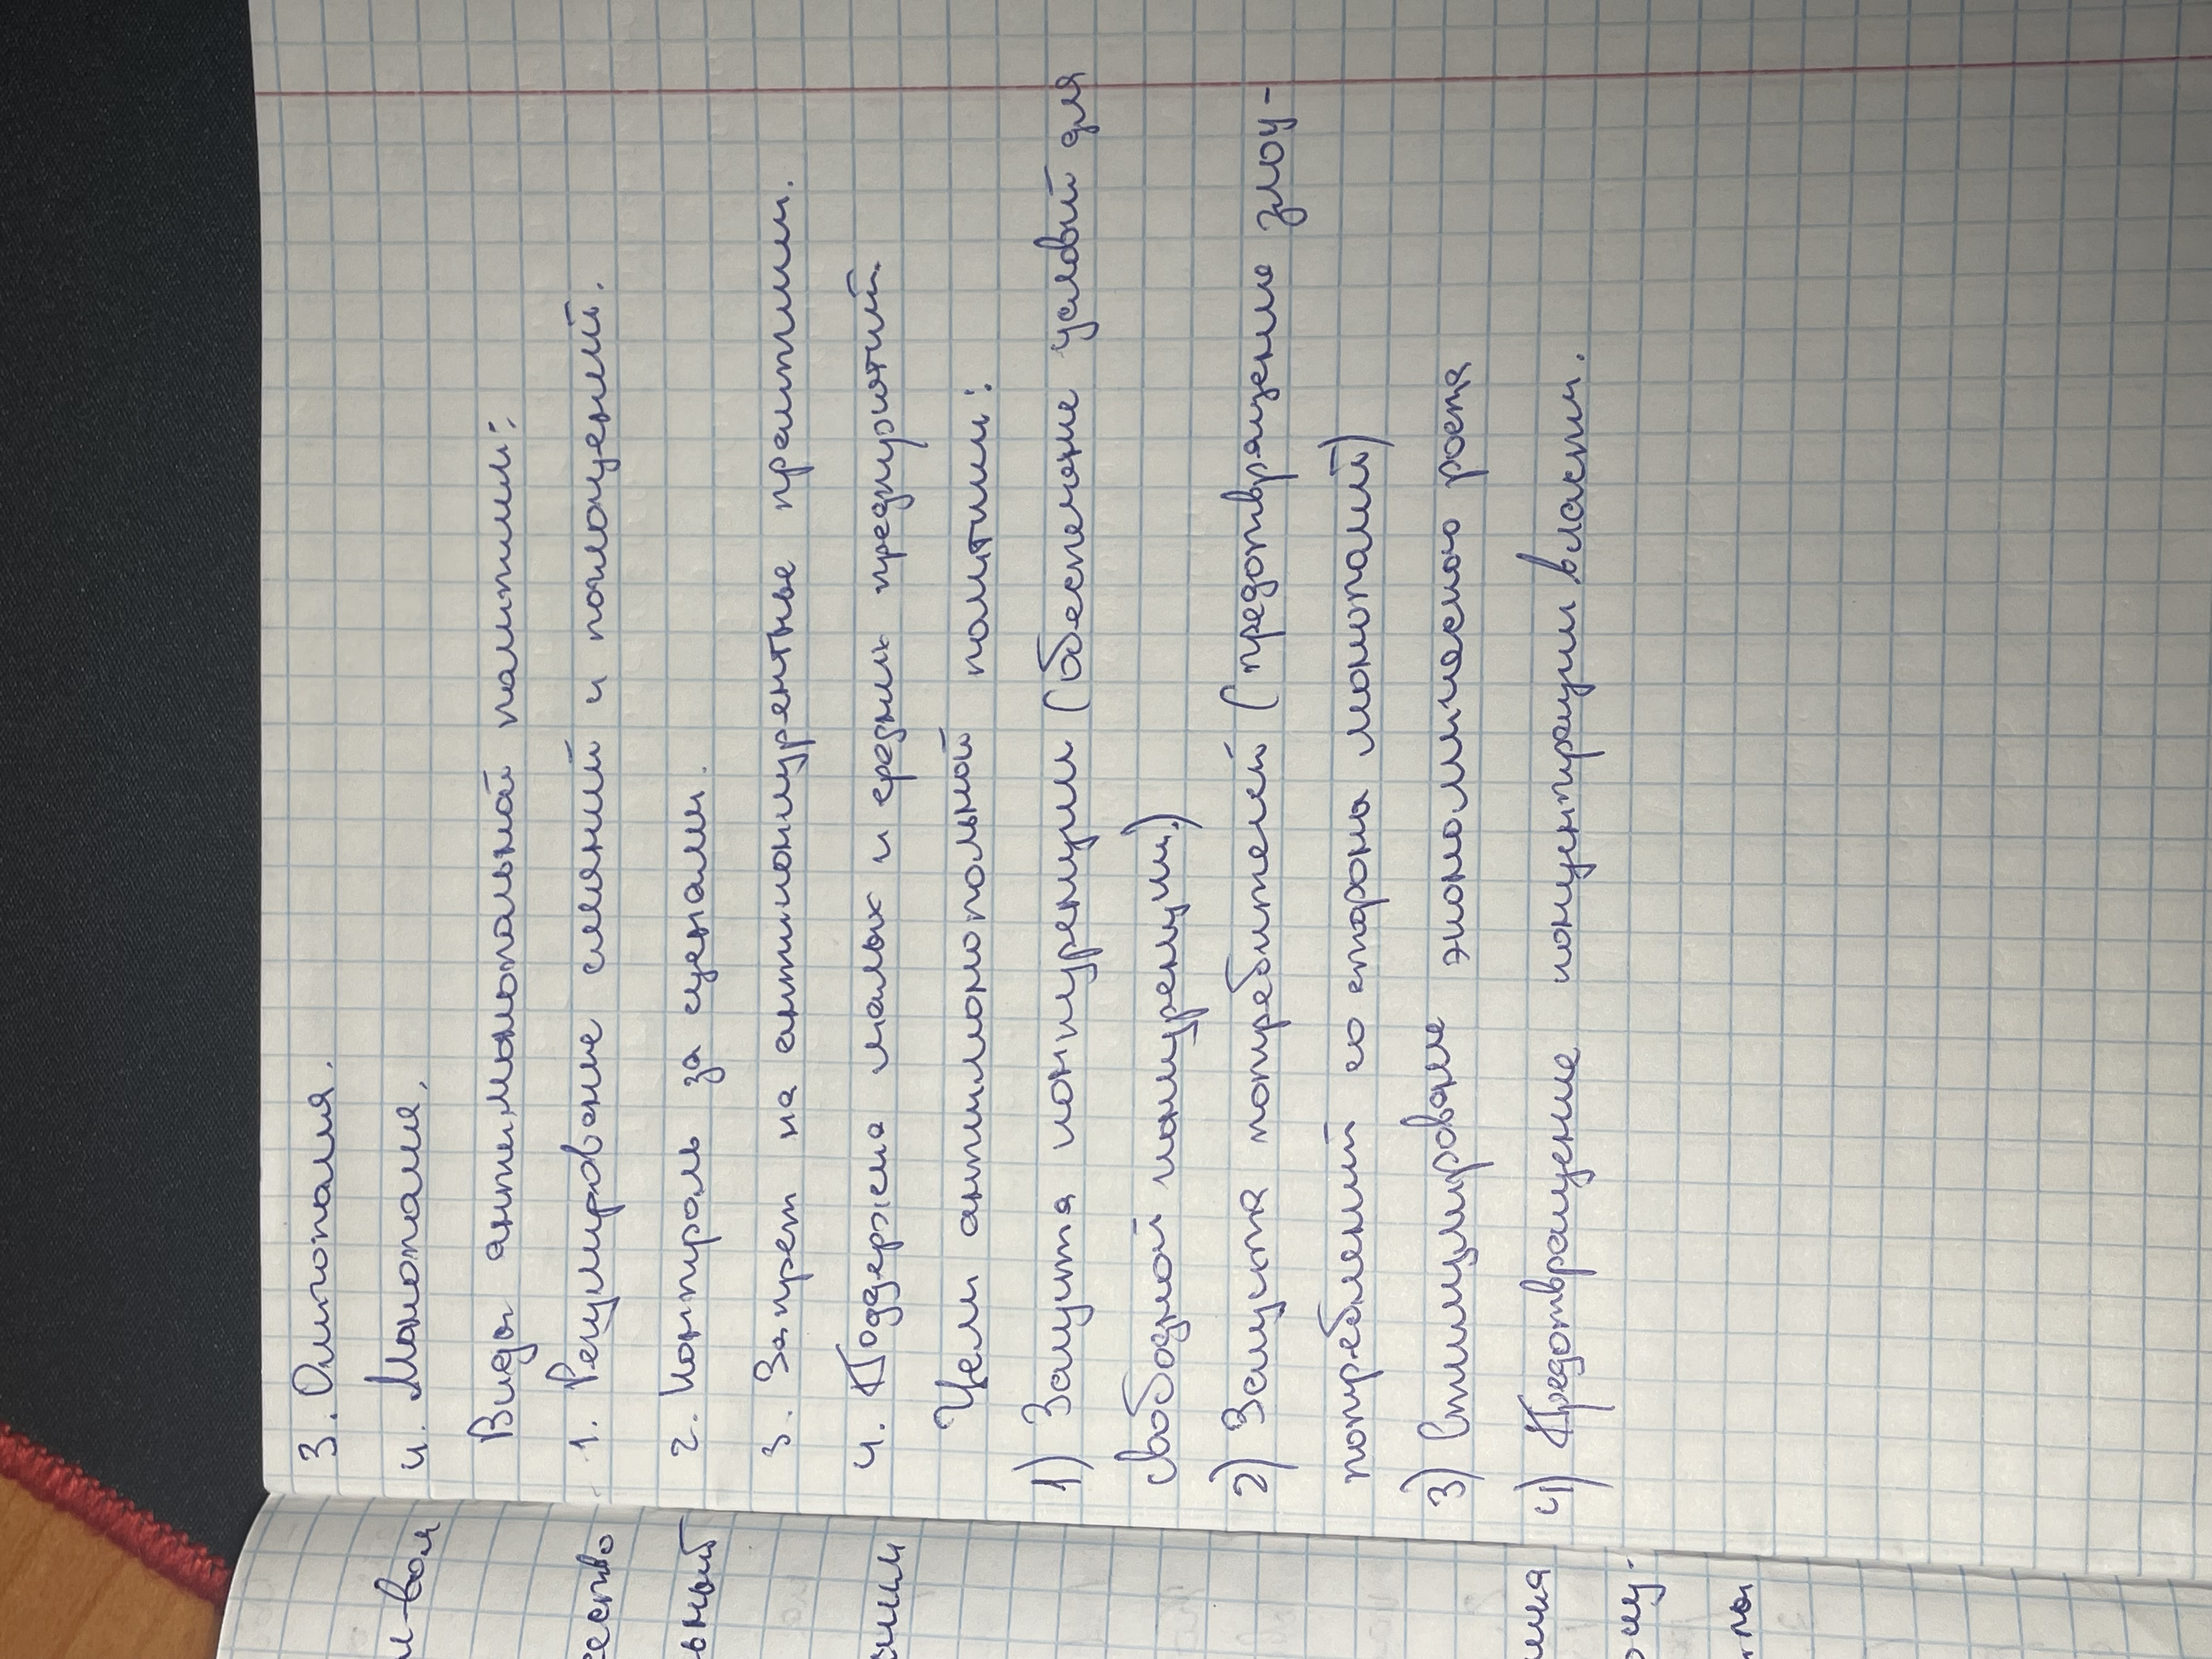 3. Олигополия.
4. Монополия.
Виды антимонопольной политики:
1. Регулирование слияний и поглощений.
2. Контроль за ценами.
3. Запрет на антиконкурентные практики.
4. Поддержка малых и средних предприятий.
Цели антимонопольной политики:
1) Защита конкуренции (обеспечение условий для
свободной конкуренции.)
2) Защита потребителей (предотвращение злоу-
потреблений со стороны монополий)
3) Стимулирование экономического роста
4) Предотвращение концентрации власти.